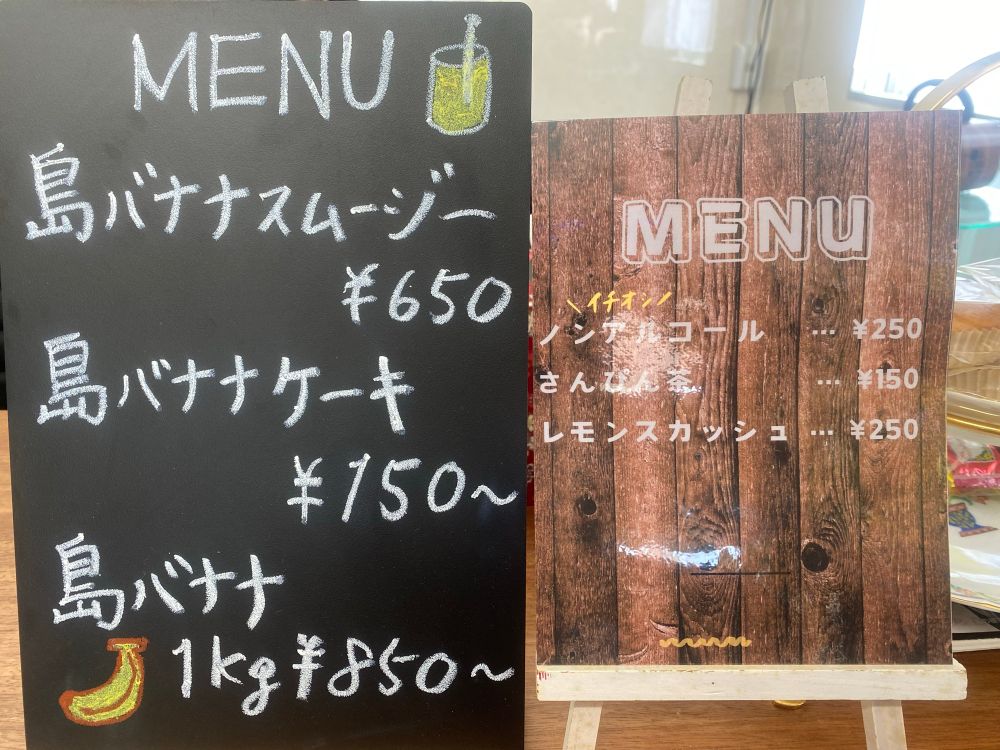 MENU
島バナナスムージー
¥650
島バナナケーキ
¥150~
島バナナ
1kg ¥850~
MENU
\イチオシ/
ノンアルコール … ¥250
さんぴん茶 … ¥150
レモンスカッシュ … ¥250